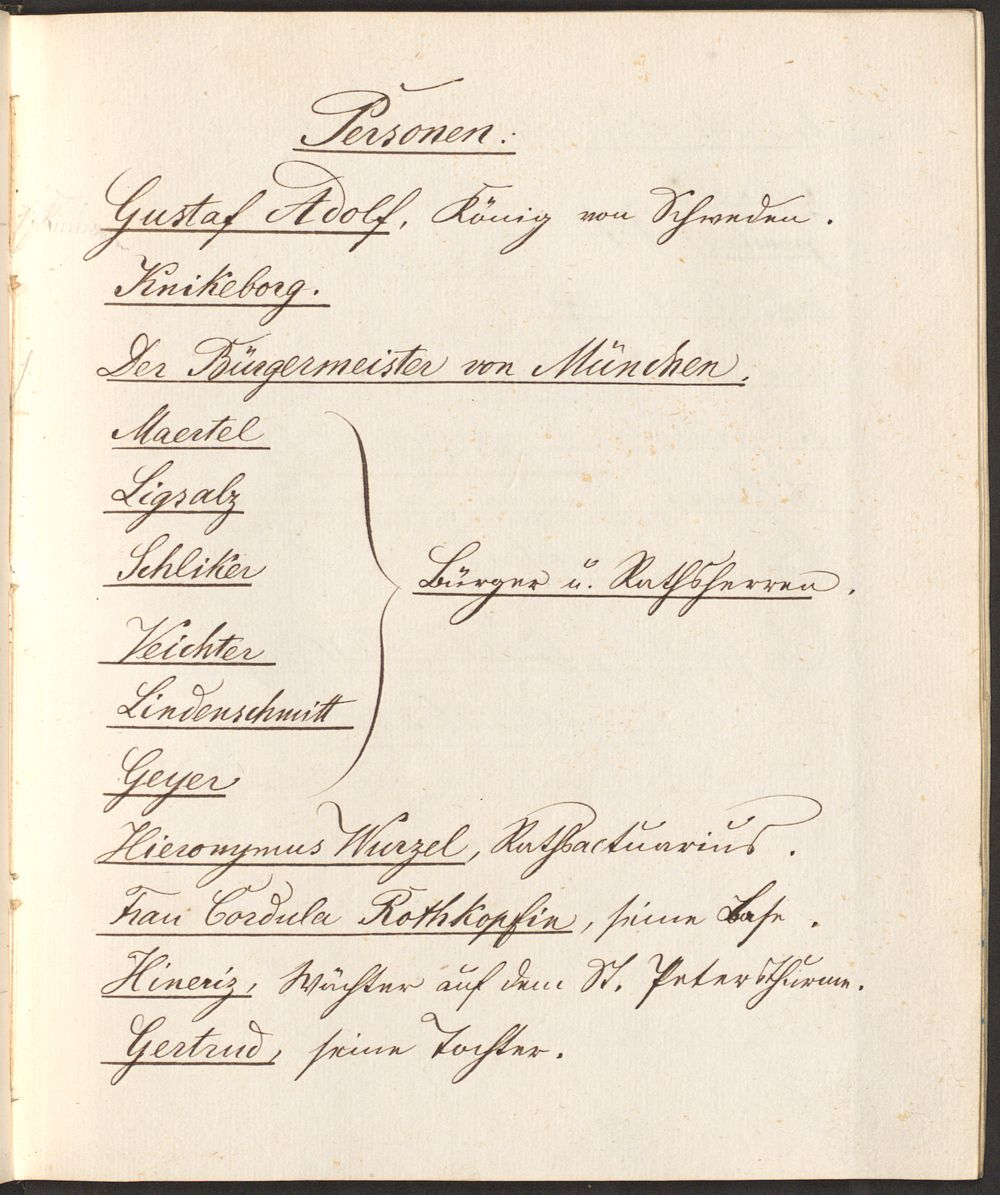 Personen:
Gustaf Adolf, König von Schweden.
Knikeborg.
Der Bürgermeister von München.
Maertel
Ligsalz
Schliker
Veichter
Lindenschmitt
Geyer
Bürger u. Rathsherren.
Hieronymus Wurzel, Rathsactuarius.
Frau Cordula Rothkopfin, seine Base.
Hineriz, Wächter auf dem St. Petersthurme.
Gertrud, seine Tochter.